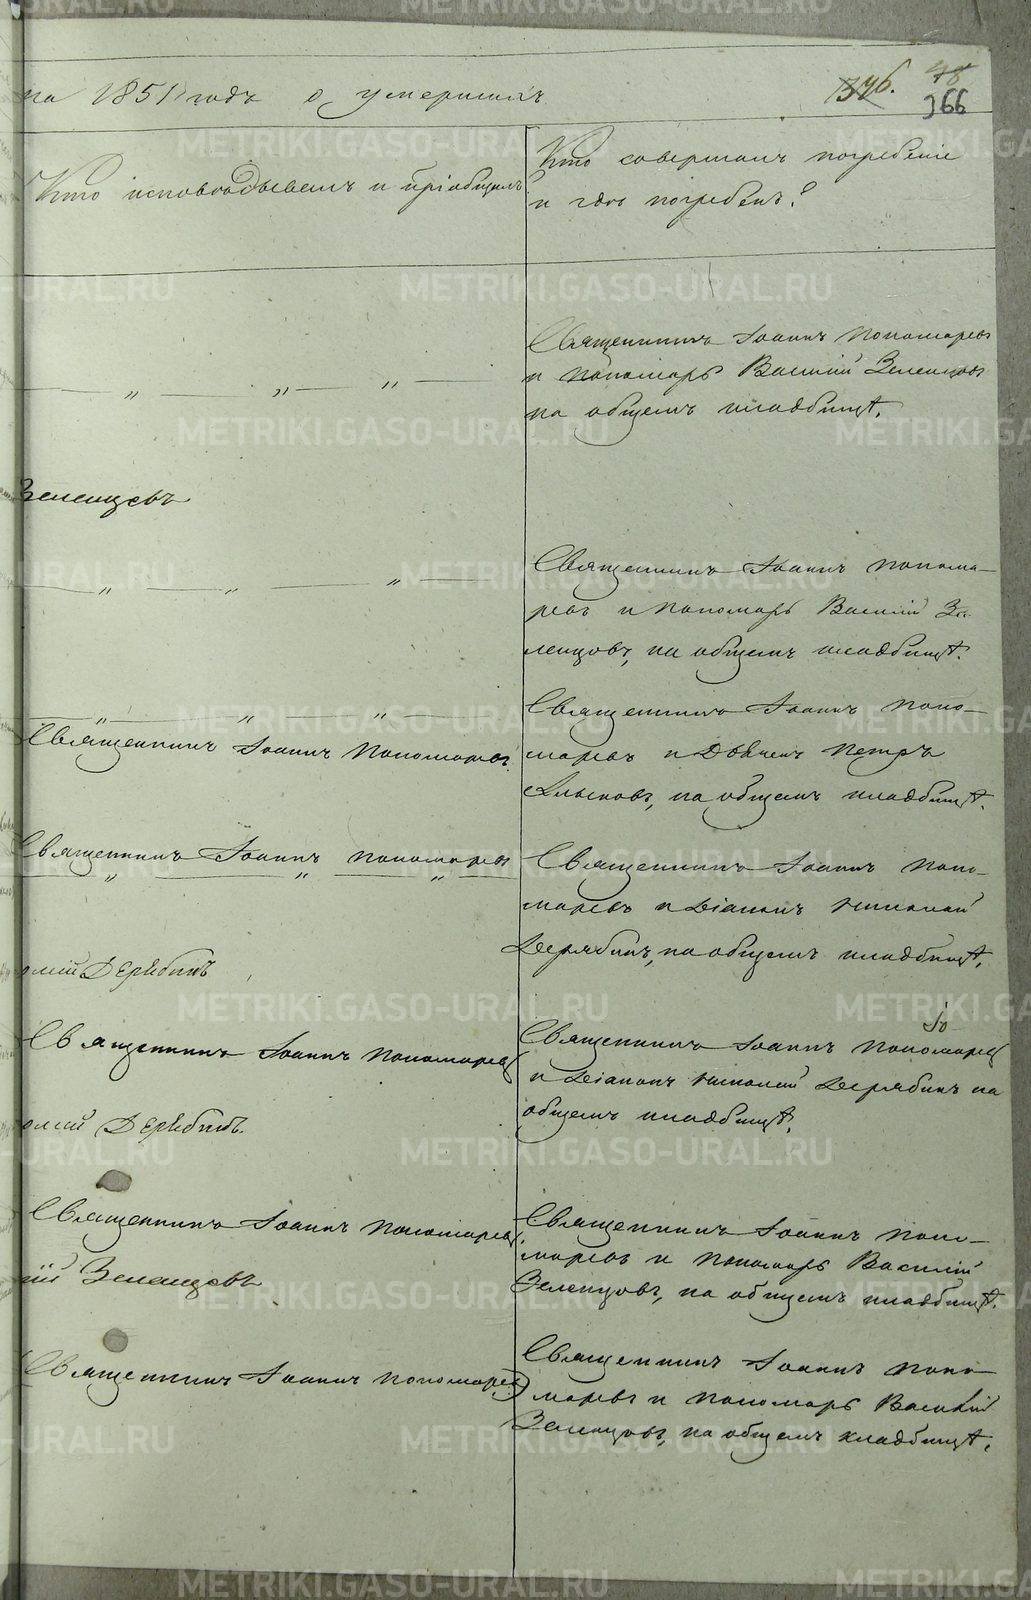 на 1851 годъ о умершихъ
346. 48
366
Кто исповѣдывалъ и пріобщалъ
Кто совершалъ погребеніе
и гдѣ погребенъ?
Священникъ Іоаннъ Пономаревъ
и Пономарь Василій Зеленцовъ
на общемъ кладбищѣ.
Зеленцовъ
Священникъ Іоаннъ Понома-
ревъ и Пономарь Василій Зе-
ленцовъ, на общемъ кладбищѣ.
Священникъ Іоаннъ Пономаревъ
Священникъ Іоаннъ Поно-
маревъ и Дьячекъ Петръ
на общемъ кладбищѣ.
Священникъ Іоаннъ Пономаревъ
Священникъ Іоаннъ Поно-
маревъ и Діаконъ Николай
Дерябинъ, на общемъ кладбищѣ.
олай Дерябинъ
Священникъ Іоаннъ Пономаревъ
Священникъ Іоаннъ Пономаревъ
и Діаконъ Николай Дерябинъ на
общемъ кладбищѣ.
олай Дерябинъ.
Священникъ Іоаннъ Пономаревъ
Священникъ Іоаннъ Поно-
маревъ и Пономарь Василій
Зеленцовъ, на общемъ кладбищѣ.
ій Зеленцовъ
Священникъ Іоаннъ Пономаревъ
Священникъ Іоаннъ Поно-
маревъ и Пономарь Василій
Зеленцовъ, на общемъ кладбищѣ.
METRIKI.GASO-URAL.RU